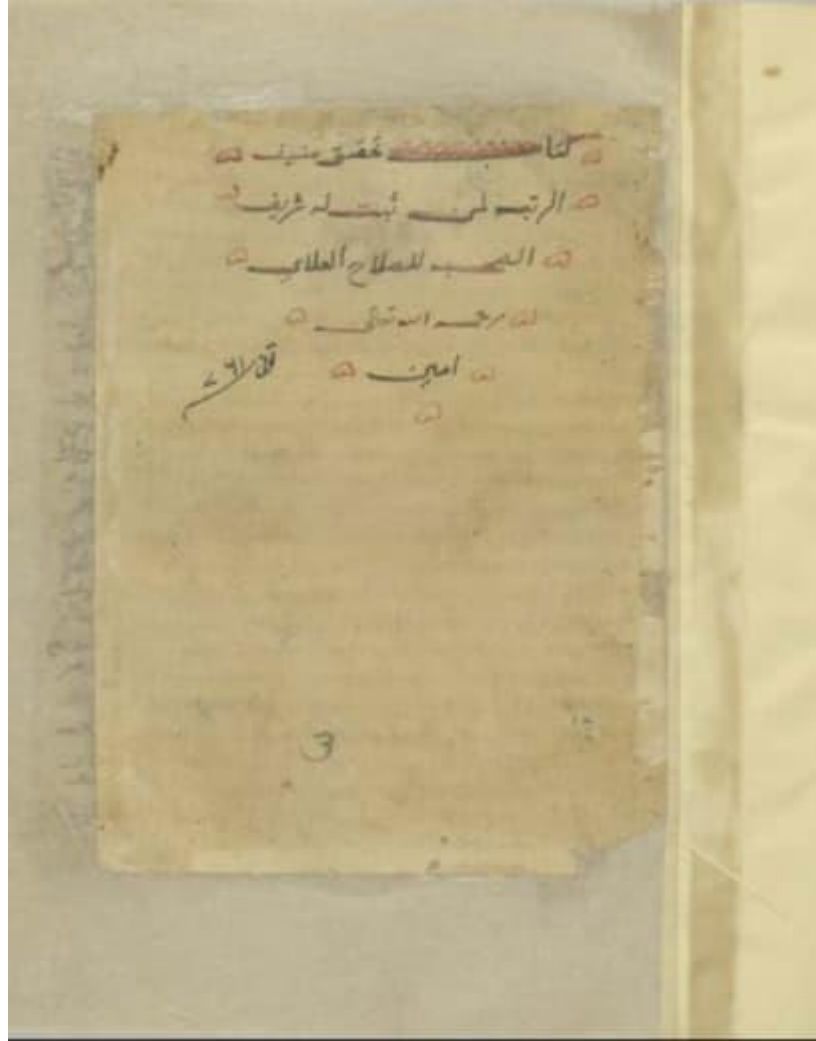 كتاب تحقيق منيف
الرتبه لمن ثبت له شريف
الصحبه للصلاح العلاي
رحمه الله تعالى
امين